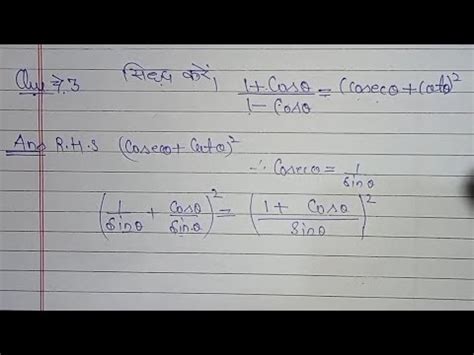 Que नं.3 सिद्ध करें। (1+Cosθ)/(1-Cosθ) = (Cosecθ+Cotθ)²
Ans R.H.S (Cosecθ+Cotθ)²
∴ Cosecθ = 1/sinθ
(1/sinθ + Cosθ/sinθ)² = ((1+ Cosθ)/sinθ)²